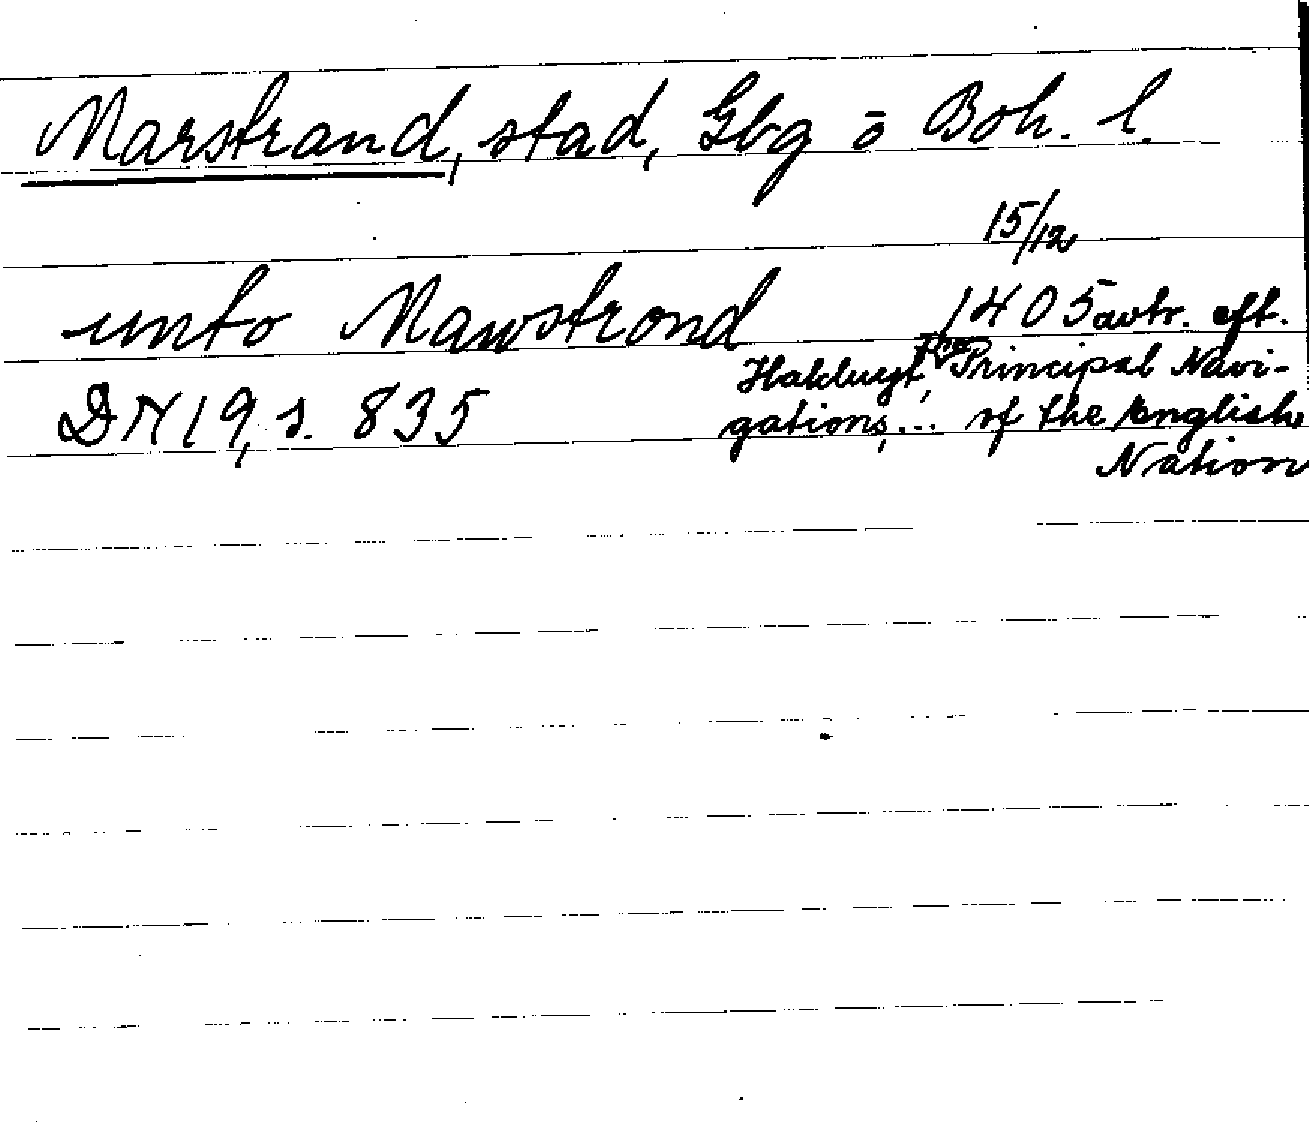 Marstrand, stad, Gbg o Boh. l.
15/12
unto Mawstrond 1405 avtr. eft.
Hakluyt, The Principal Navi-
DN 19, s. 835 gations, ... of the English
Nation